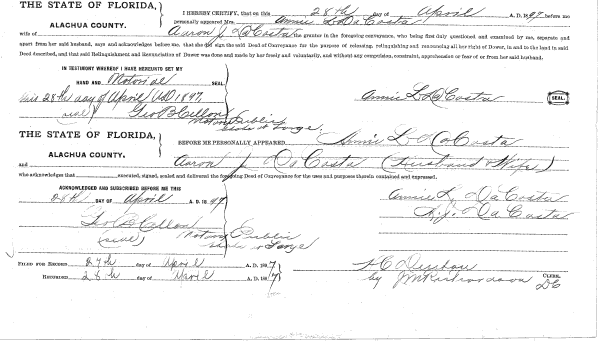 THE STATE OF FLORIDA,
ALACHUA COUNTY.
I HEREBY CERTIFY, that on this 28th day of April A. D. 1897 before me
personally appeared Mrs. Annie L DaCosta
wife of Aaron J DaCosta the grantor in the foregoing conveyance, who being first duly questioned and examined by me, separate and
apart from her said husband, says and acknowledges before me, that she did sign the said Deed of Conveyance for the purpose of releasing, relinquishing and renouncing all her right of Dower, in and to the land in said
Deed described, and that said Relinquishment and Renunciation of Dower was done and made by her freely and voluntarily, and without any compulsion, constraint, apprehension or fear of or from her said husband.
IN TESTIMONY WHEREOF I HAVE HEREUNTO SET MY
HAND AND Notorial SEAL
this 28th day of April AD 1897.
Annie L DaCosta SEAL.
seal Geo B Cellon
Notary Public
State at Large.
THE STATE OF FLORIDA,
ALACHUA COUNTY.
BEFORE ME PERSONALLY APPEARED Annie L DaCosta
and Aaron J DaCosta (Husband & Wife)
who acknowledges that executed, signed, sealed and delivered the foregoing Deed of Conveyance for the uses and purposes therein contained and expressed.
ACKNOWLEDGED AND SUBSCRIBED BEFORE ME THIS
28th DAY OF April A. D. 1897
Annie L. DaCosta
A. J. DaCosta
Geo B Cellon
(seal) Notary Public
State at Large
FILED FOR RECORD 27th day of April A. D. 1897
RECORDED 28th day of April A. D. 1897
by JM Richardson CLERK.
DC